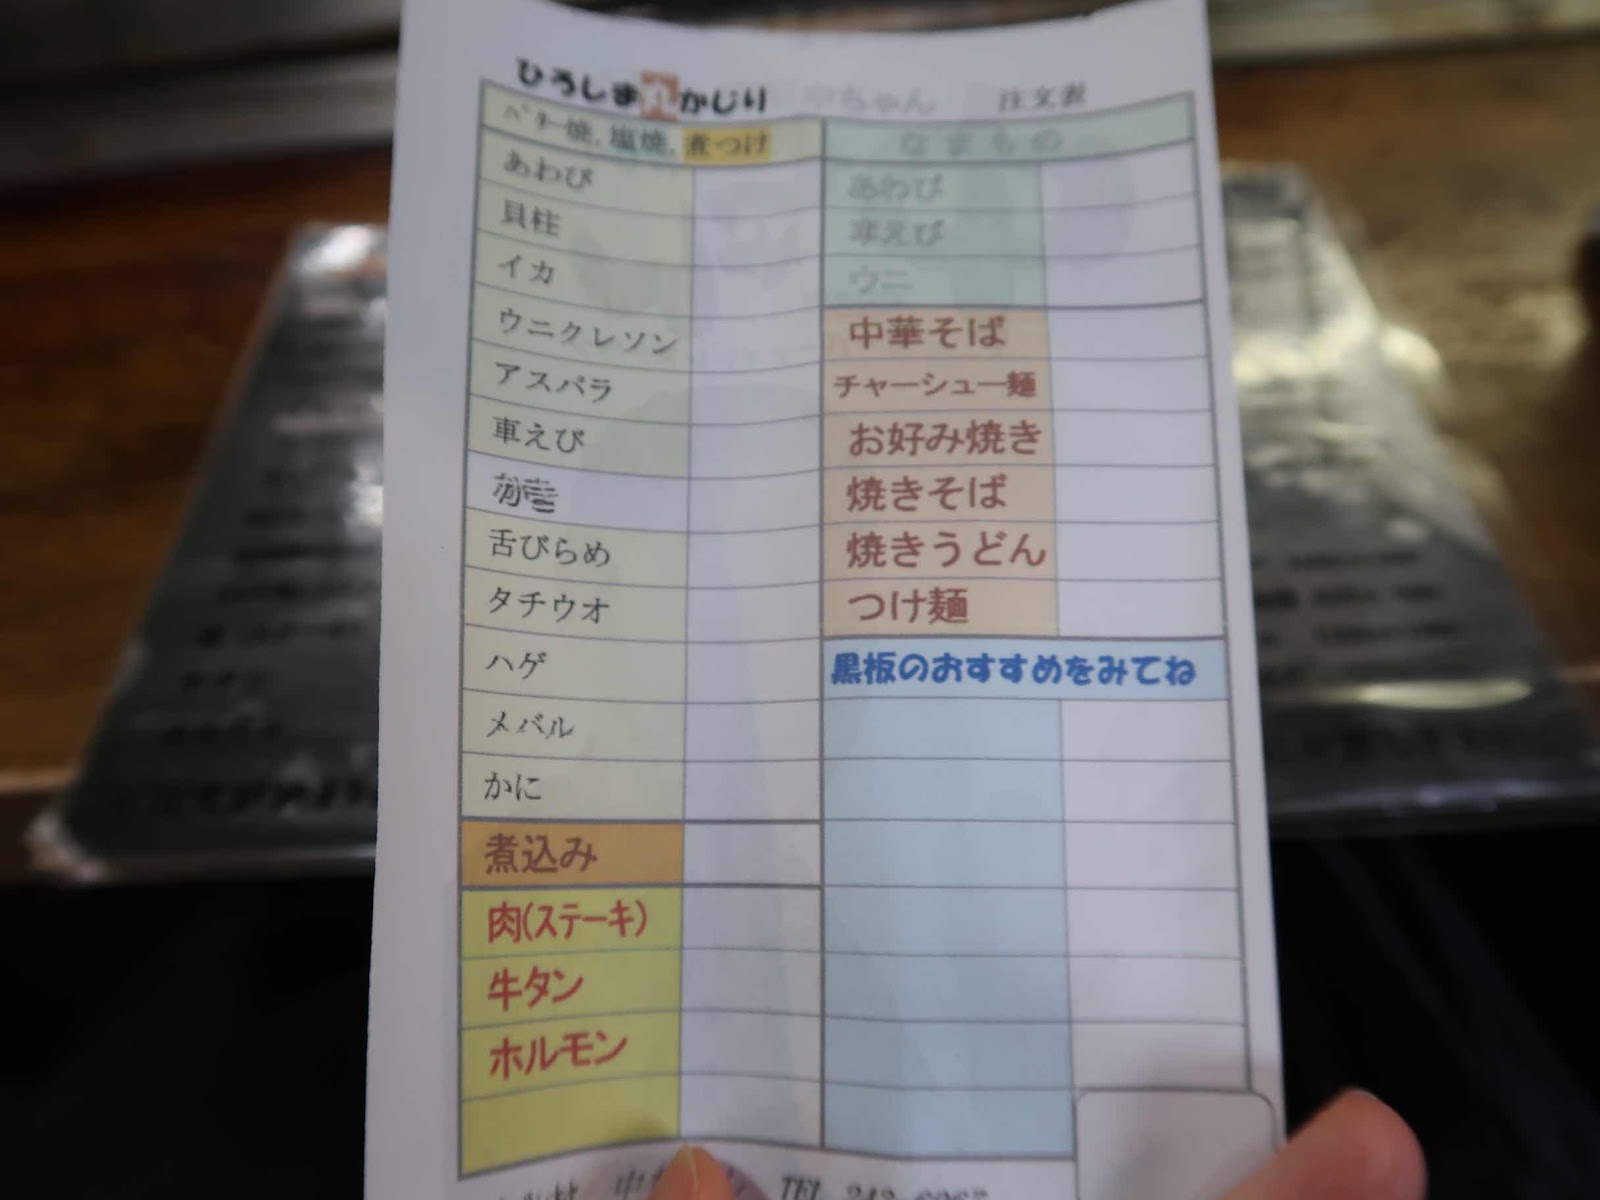 ひろしま丸かじり 中ちゃん 注文表
バター焼、塩焼、煮つけ
あわび
貝柱
イカ
ウニクレソン
アスパラ
車えび
舌びらめ
タチウオ
ハゲ
メバル
かに
煮込み
肉(ステーキ)
牛タン
ホルモン
なまもの
あわび
車えび
ウニ
中華そば
チャーシュー麺
お好み焼き
焼きそば
焼きうどん
つけ麺
黒板のおすすめをみてね
TEL